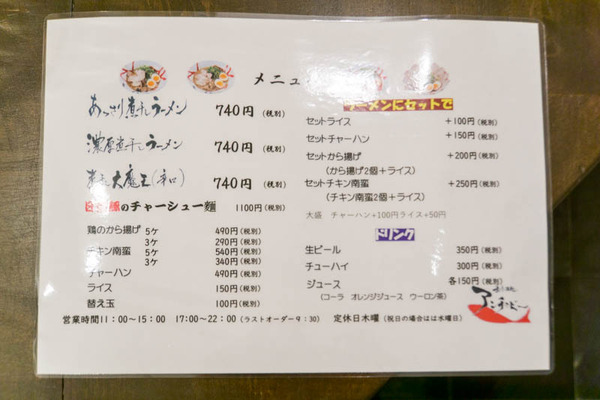 メニュ
あっさり煮干しラーメン 740円 (税別)
濃厚煮干しラーメン 740円 (税別)
大魔王(辛口) 740円 (税別)
豚のチャーシュー麺 1100円(税別)
鶏のから揚げ 5ケ 490円(税別)
3ケ 290円(税別)
チキン南蛮 5ケ 540円(税別)
3ケ 340円(税別)
チャーハン 490円(税別)
ライス 150円(税別)
替え玉 100円(税別)
ラーメンにセットで
セットライス +100円(税別)
セットチャーハン +150円(税別)
セットから揚げ +200円(税別)
(から揚げ2個+ライス)
セットチキン南蛮 +250円(税別)
(チキン南蛮2個+ライス)
大盛 チャーハン+100円ライス+50円
ドリンク
生ビール 350円(税別)
チューハイ 300円(税別)
ジュース 各150円(税別)
(コーラ オレンジジュース ウーロン茶)
営業時間11:00~15:00 17:00~22:00(ラストオーダー9:30) 定休日木曜(祝日の場合はは水曜日)